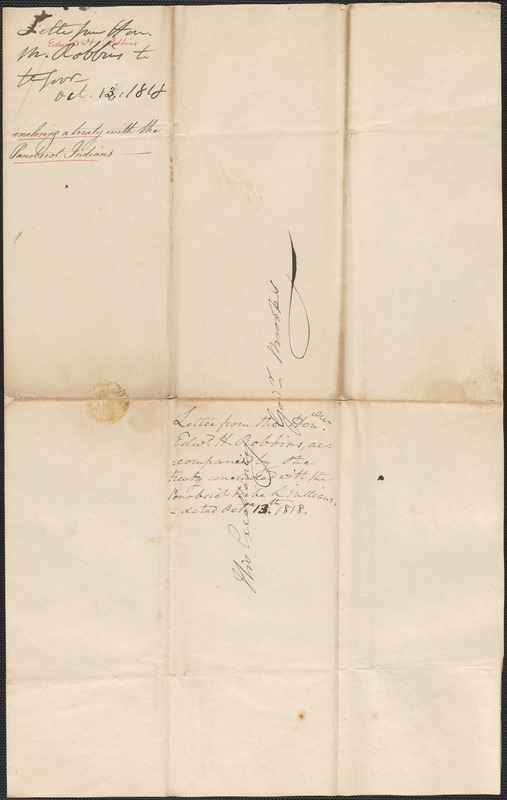 Letter from Hon.
Edward H. Robbins
Mr. Robbins to
the Govr
Oct. 13, 1818
enclosing a treaty with the
Penobscot Indians —
His Excellency Govr. Brooks
Letter from the Honble
Edwd. H. Robbins, ac-
-companied by the
treaty concluded with the
Penobscot tribe of Indians,
- dated Oct. 13th. 1818.